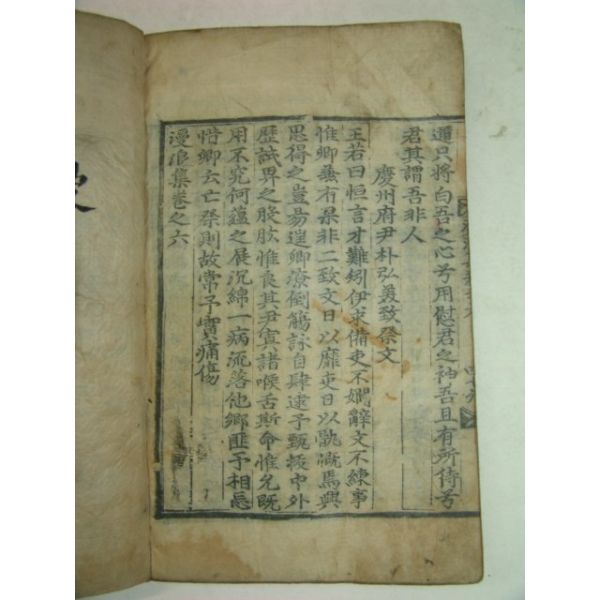 遁只將白吾之心兮用慰君之神吾且有所侍兮
君其謂吾非人
慶州府尹朴弘美致祭文
王若曰恒言才難矧伊求備吏不嫺辭文不練事
惟卿兼有果非二致文日以靡吏日以骫慨焉興
思得之豈易遑卿潦倒觴詠自肆逮予甄拔中外
歷試畀之股肱惟良其尹寘諸喉舌斯命惟允既
用不究何蘊之展沉綿一病流落他鄉匪予相忘
惜卿云亡祭則故常予實痛傷
漫浪集卷之六